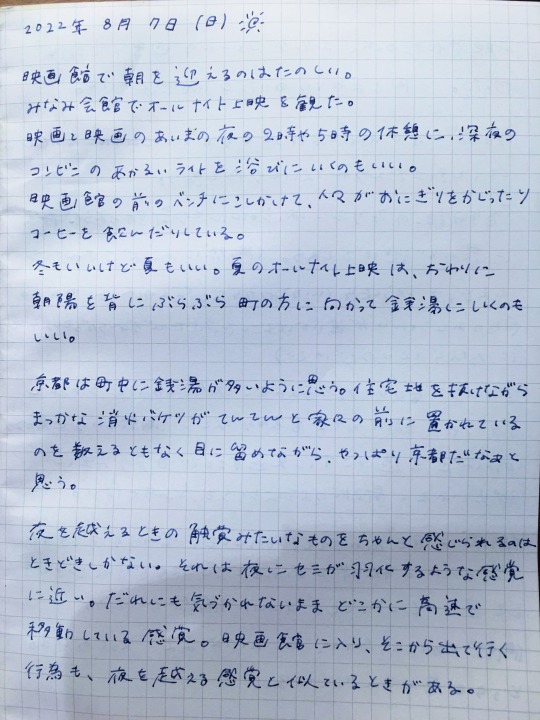 2022年 8月 7日 (日)
映画館で朝を迎えるのはたのしい。
みなみ会館でオールナイト上映を観た。
映画と映画のあいまの夜の2時や5時の休憩に、深夜の
コンビニのあかるいライトを浴びにいくのもいい。
映画館の前のベンチにこしかけて、人々がおにぎりをかじったり
コーヒーを飲んだりしている。
冬もいいけど夏もいい。夏のオールナイト上映は、おわりに
朝陽を背にぶらぶら町の方に向かって銭湯にいくのも
いい。
京都は町中に銭湯が多いように思う。住宅地を抜けながら
まっかな消火バケツがてんてんと家々の前に置かれている
のを数えるともなく目に留めながら、やっぱり京都だなぁと
思う。
夜を越えるときの触覚みたいなものをちゃんと感じられるのは
ときどきしかない。それは夜にセミが羽化するような感覚
に近い。だれにも気づかれないままどこかに高速で
移動している感覚。映画館に入り、そこから出て行く
行為も、夜を越える感覚と似ているときがある。